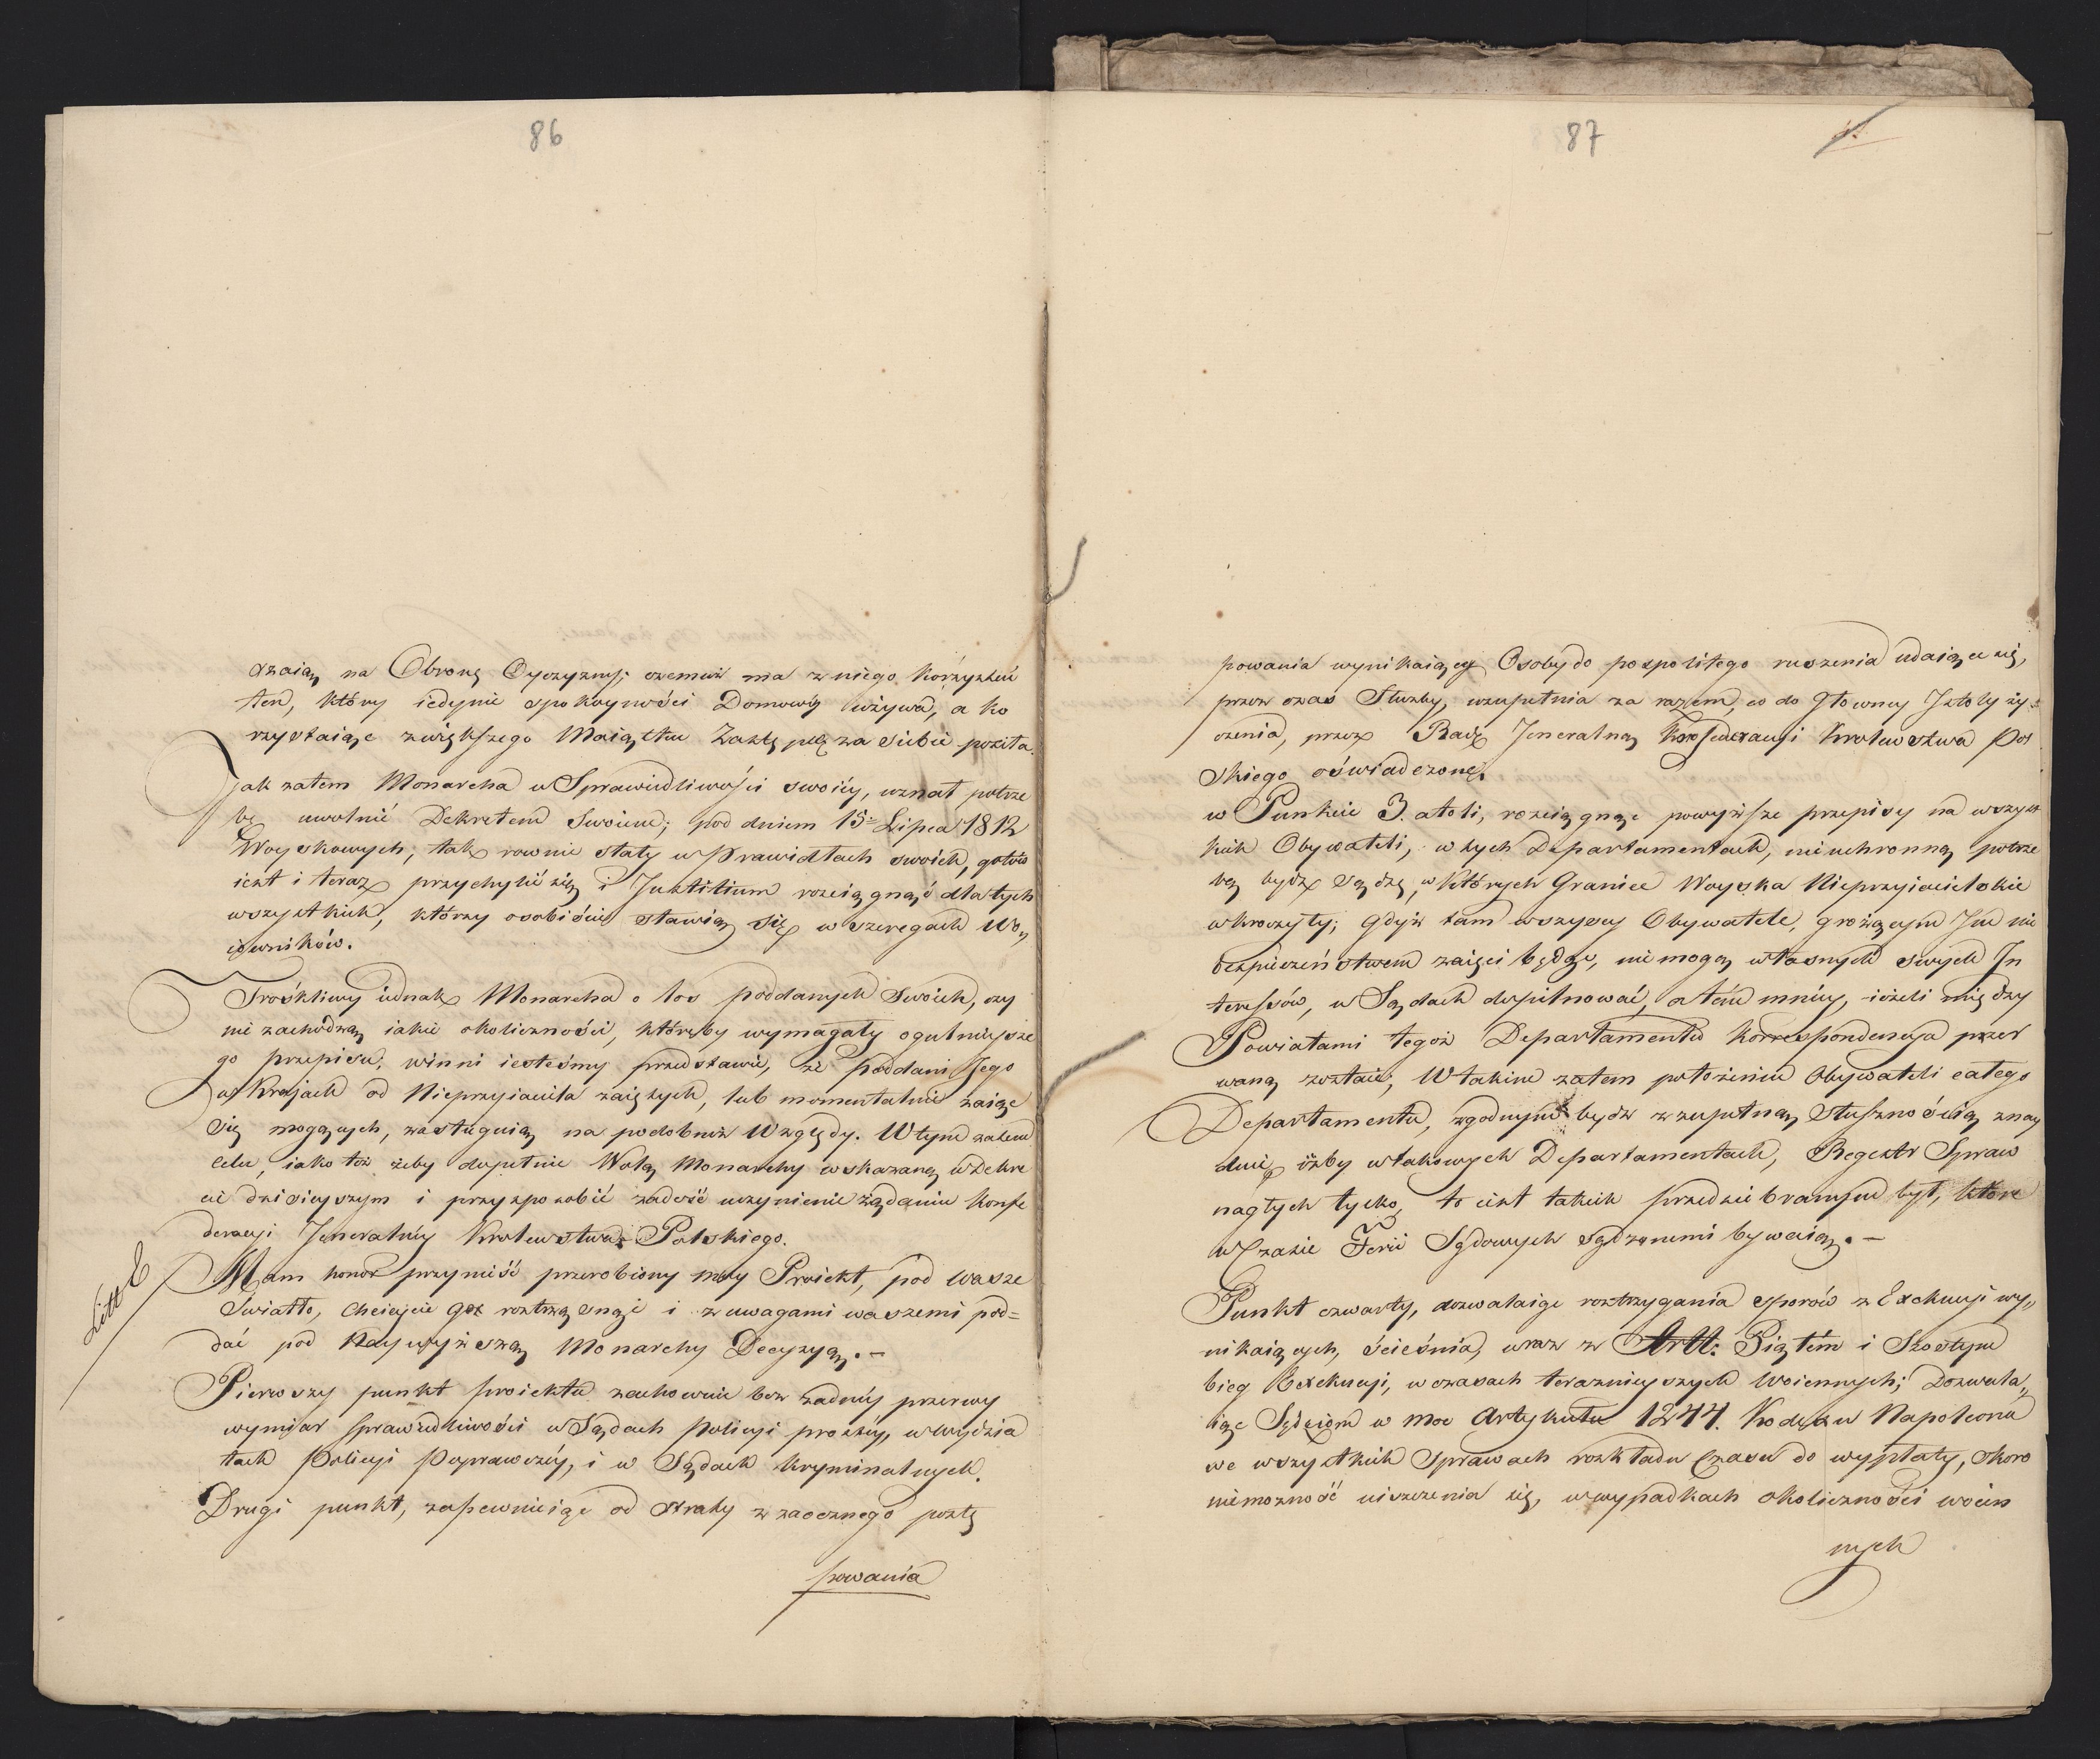 86
dzaią na Obronę Oyczyzny; czemuż ma z niego korzystać
ten, który iedynie spokoyności Domowéy używa, a ko
rzystaiąc z większego Maiątku Zastępcę za siebie posiła.
Jak zatem Monarcha w Sprawiedliwości swoiéy, uznał potrze
bę uwolnić Dekretem Swoim; pod dniem 15. Lipca 1812
Woyskowych, tak rownie stały w Prawidłach swoich, gotów
iest i teraz przychylić się i Justitium rozciągnąć dla tych
wszystkich, którzy osobiście stawią się w szeregach Wo„
iowników.
Troskliwy iednak Monarcha o los poddanych Swoich, czy
nie zachodzą iakie okoliczności, któreby wymagały ogulnieysze
go przepisu, winni iesteśmy przedstawić, że poddani Jego
w Krajach od Nieprzyiaciela zaiętych, lub momentalnie zaiąć
się mogących, zasługuią na podobnież Względy. W tym zatem
celu, iako toż żeby dopełnić Wolą Monarchy wskazaną w Dekre
cie dzisieyszym i przysposobić zadość uczynienie żądaniu Konfe
deracyi Jeneralnéy Krolewstwa Polskiego.
Litt E
Mam honor przynieść przerobiony móy Proiekt, pod wasze
Swiatło, chcieycie go roztrząsnąć i z uwagami waszemi pod=
dać pod Naywyższą Monarchy Decyzyą. –
Pierwszy punkt proiektu zachowuie bez żadnéy przerwy
wymiar sprawiedliwości w Sądach Policyi prostéy, w Wydzia
łach Policyi Poprawczéy, i w Sądach Kryminalnych.
Drugi punkt, zapewniaiąc od straty z zaocznego postę
powania
87
powania wynikaiącey Osoby do pospolitego ruszenia udaiące się,
przez czas Służby, uzupełnia za razem, co do głowney Istoty ży=
czenia, przez Radę Jeneralną Konfederacyi Krolewstwa Pol
skiego oświadczone.
w Punkcie 3. atoli, rozciągnąć powyższe przepisy na wszyst
kich Obywateli, w tych Departamentach, nieuchronną potrze
bą bydź sądzę, w których Granice Woyska Nieprzyiacielskie
wkroczyły; gdyż tam wszyscy Obywatele, grożącym Im nie
bezpieczeństwem zaięci będąc, nie mogą własnych swych In
teressów, w Sądach dopilnować, a tém mniéy, ieżeli między
Powiatami tegoż Departamentu Korrespondencya przer
waną zostaie; W takim zatem położeniu Obywateli całego
Departamentu, zgodnym bydź z zupełną Słusznością znay
duię iżby w takowych Departamentach, Regestr Spraw
nagłych tylko, to iest takich przedsiebranym był, które
w Czasie Ferii Sądowych sądzonemi bywaią. –
Punkt czwarty, dozwalaiąc roztrzygania sporów z Exekucyi wy„
nikaiących, ścieśnia, wraz z Artt: Piątém i Szostym
bieg Exekucyi, w czasach teraznieyszych Woiennych; Dozwala„
iąc Sędziom w moc Artykułu 1244. Kodexu Napoleona
we wszystkich Sprawach rozkładu Czasu do wypłaty, skoro
niemożność uiszczenia się, w wypadkach okoliczności woien
nych